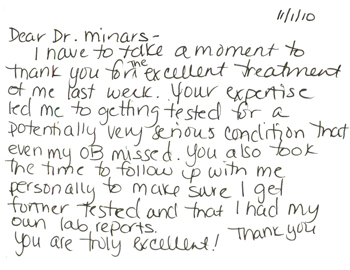 11/1/10
Dear Dr. minars-
I have to take a moment to
thank you for the excellent treatment
of me last week. Your expertise
led me to getting tested for a
potentially very serious condition that
even my OB missed. You also took
the time to follow up with me
personally to make sure I get
further tested and that I had my
own lab reports. Thank you
You are truly excellent!